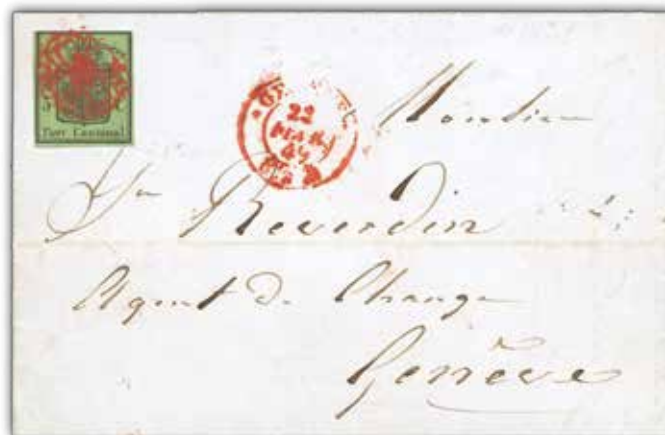 Port Cantonal
22
MARS
49
Monsieur
Reverdin
Agent de Change
Genève